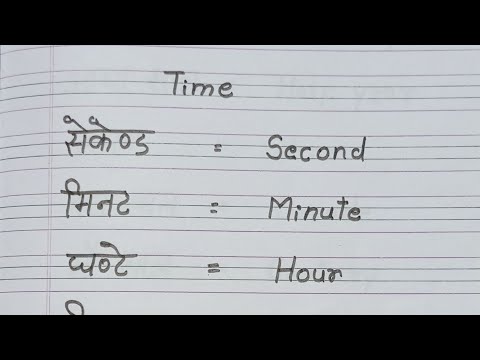 Time
सेकेण्ड = Second
मिनट = Minute
घण्टे = Hour